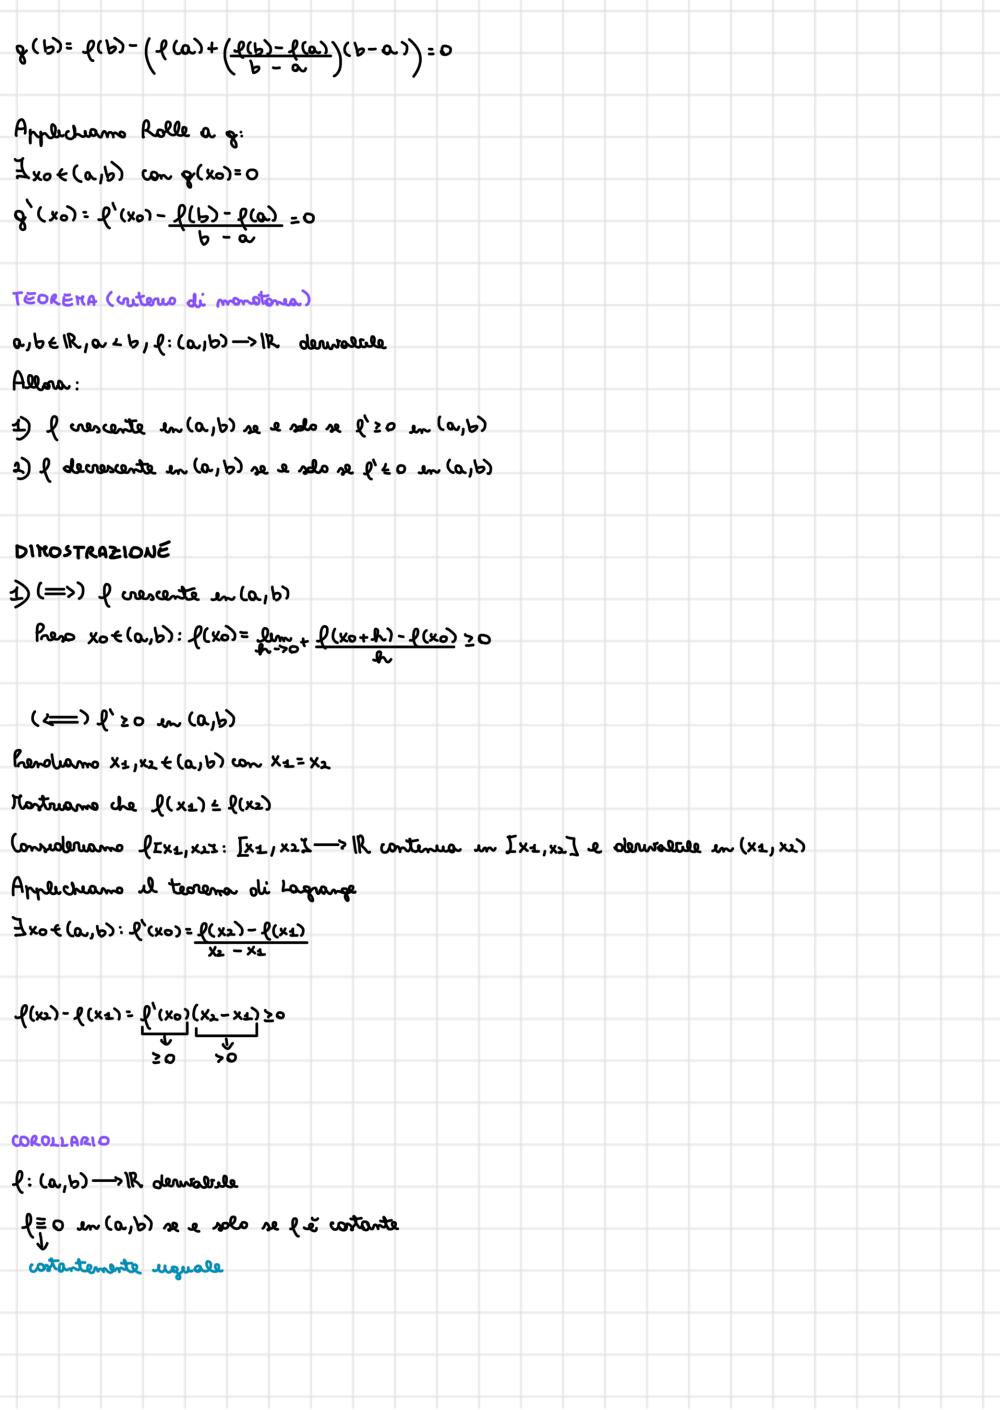 g(b)= f(b)-(f(a)+(f(b)-f(a)/b-a)(b-a))=0
Applichiamo Rolle a g:
∃x0∈(a,b) con g(x0)=0
g'(x0)= f'(x0)- f(b)-f(a)/b-a =0
TEOREMA (criterio di monotonia)
a,b∈ℝ, a<b, f:(a,b)→ℝ derivabile
Allora:
1) f crescente in (a,b) se e solo se f'≥0 in (a,b)
2) f decrescente in (a,b) se e solo se f'≤0 in (a,b)
DIMOSTRAZIONE
1) (⟹) f crescente in (a,b)
Preso x0∈(a,b): f(x0)= lim h→0+ f(x0+h)-f(x0)/h ≥0
(⟸) f'≥0 in (a,b)
Prendiamo x1,x2∈(a,b) con x1=x2
Mostriamo che f(x1)≤f(x2)
Consideriamo f[x1,x2]: [x1,x2]→ℝ continua in [x1,x2] e derivabile in (x1,x2)
Applichiamo il teorema di Lagrange
∃x0∈(a,b): f'(x0)= f(x2)-f(x1)/x2-x1
f(x2)-f(x1)= f'(x0)(x2-x1)≥0
≥0 >0
COROLLARIO
f:(a,b)→ℝ derivabile
f≡0 in (a,b) se e solo se f è costante
costantemente uguale